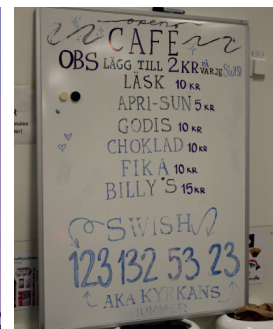 opens
CAFÉ
OBS LÄGG TILL 2KR PÅ VARJE SWISH
LÄSK 10 KR
APRI-SUN 5 KR
GODIS 10 KR
CHOKLAD 10 KR
FIKA 10 KR
BILLY'S 15 KR
SWISH
123 132 53 23
AKA KYRKANS
NUMMER